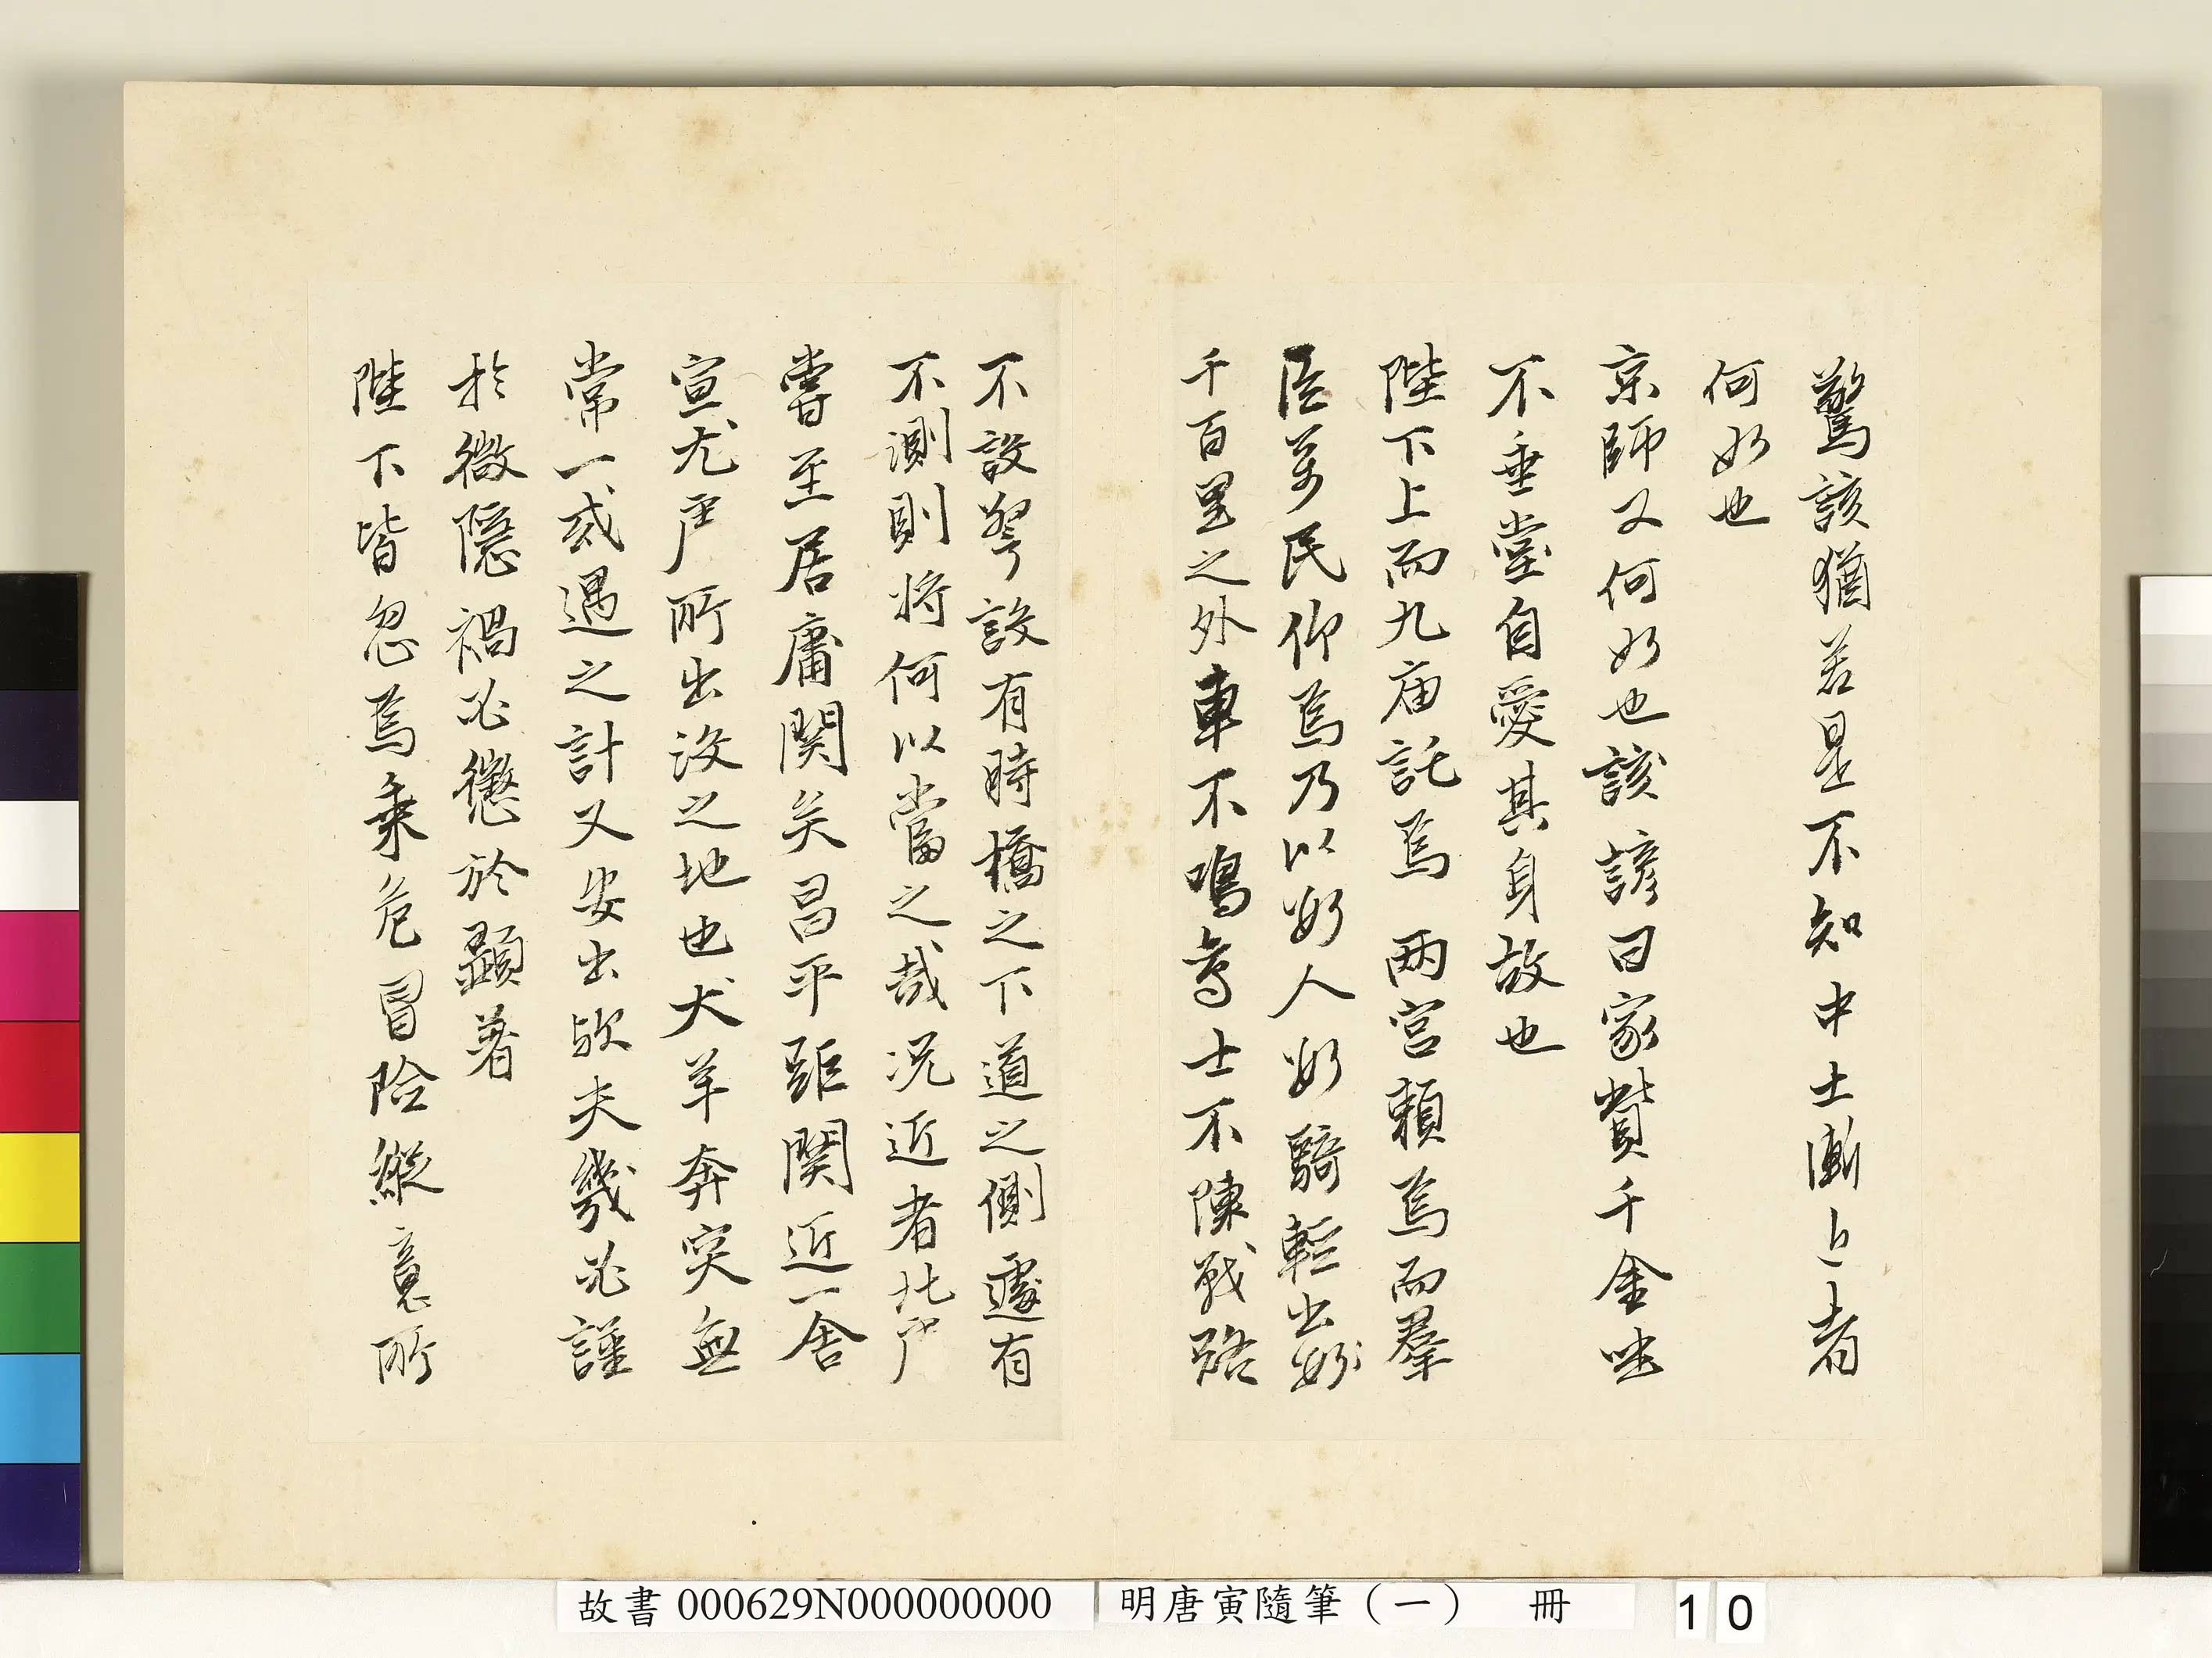 驚該猶若是不知中土漸者
何如也
京師又何如也該諺曰家貲千金坐
不垂堂自愛其身故也
陛下上而九庙託焉 两宫頼焉而羣
臣萬民仰焉乃以數人數騎輕出數
千百里之外車不鳴鸞士不陳戰路
不設弩設有時橋之下道之側遽有
不測則将何以當之哉况近者北虏
嘗至居庸関矣昌平距関近一舍
宣尤虏所出没之地也犬羊奔突無
常一或遇之計又安出欤夫幾必謹
於微隱禍必懲於顯著
陛下皆忽焉乘危冒险縱意所
故書 000629N000000000 明唐寅隨筆（一） 冊 10